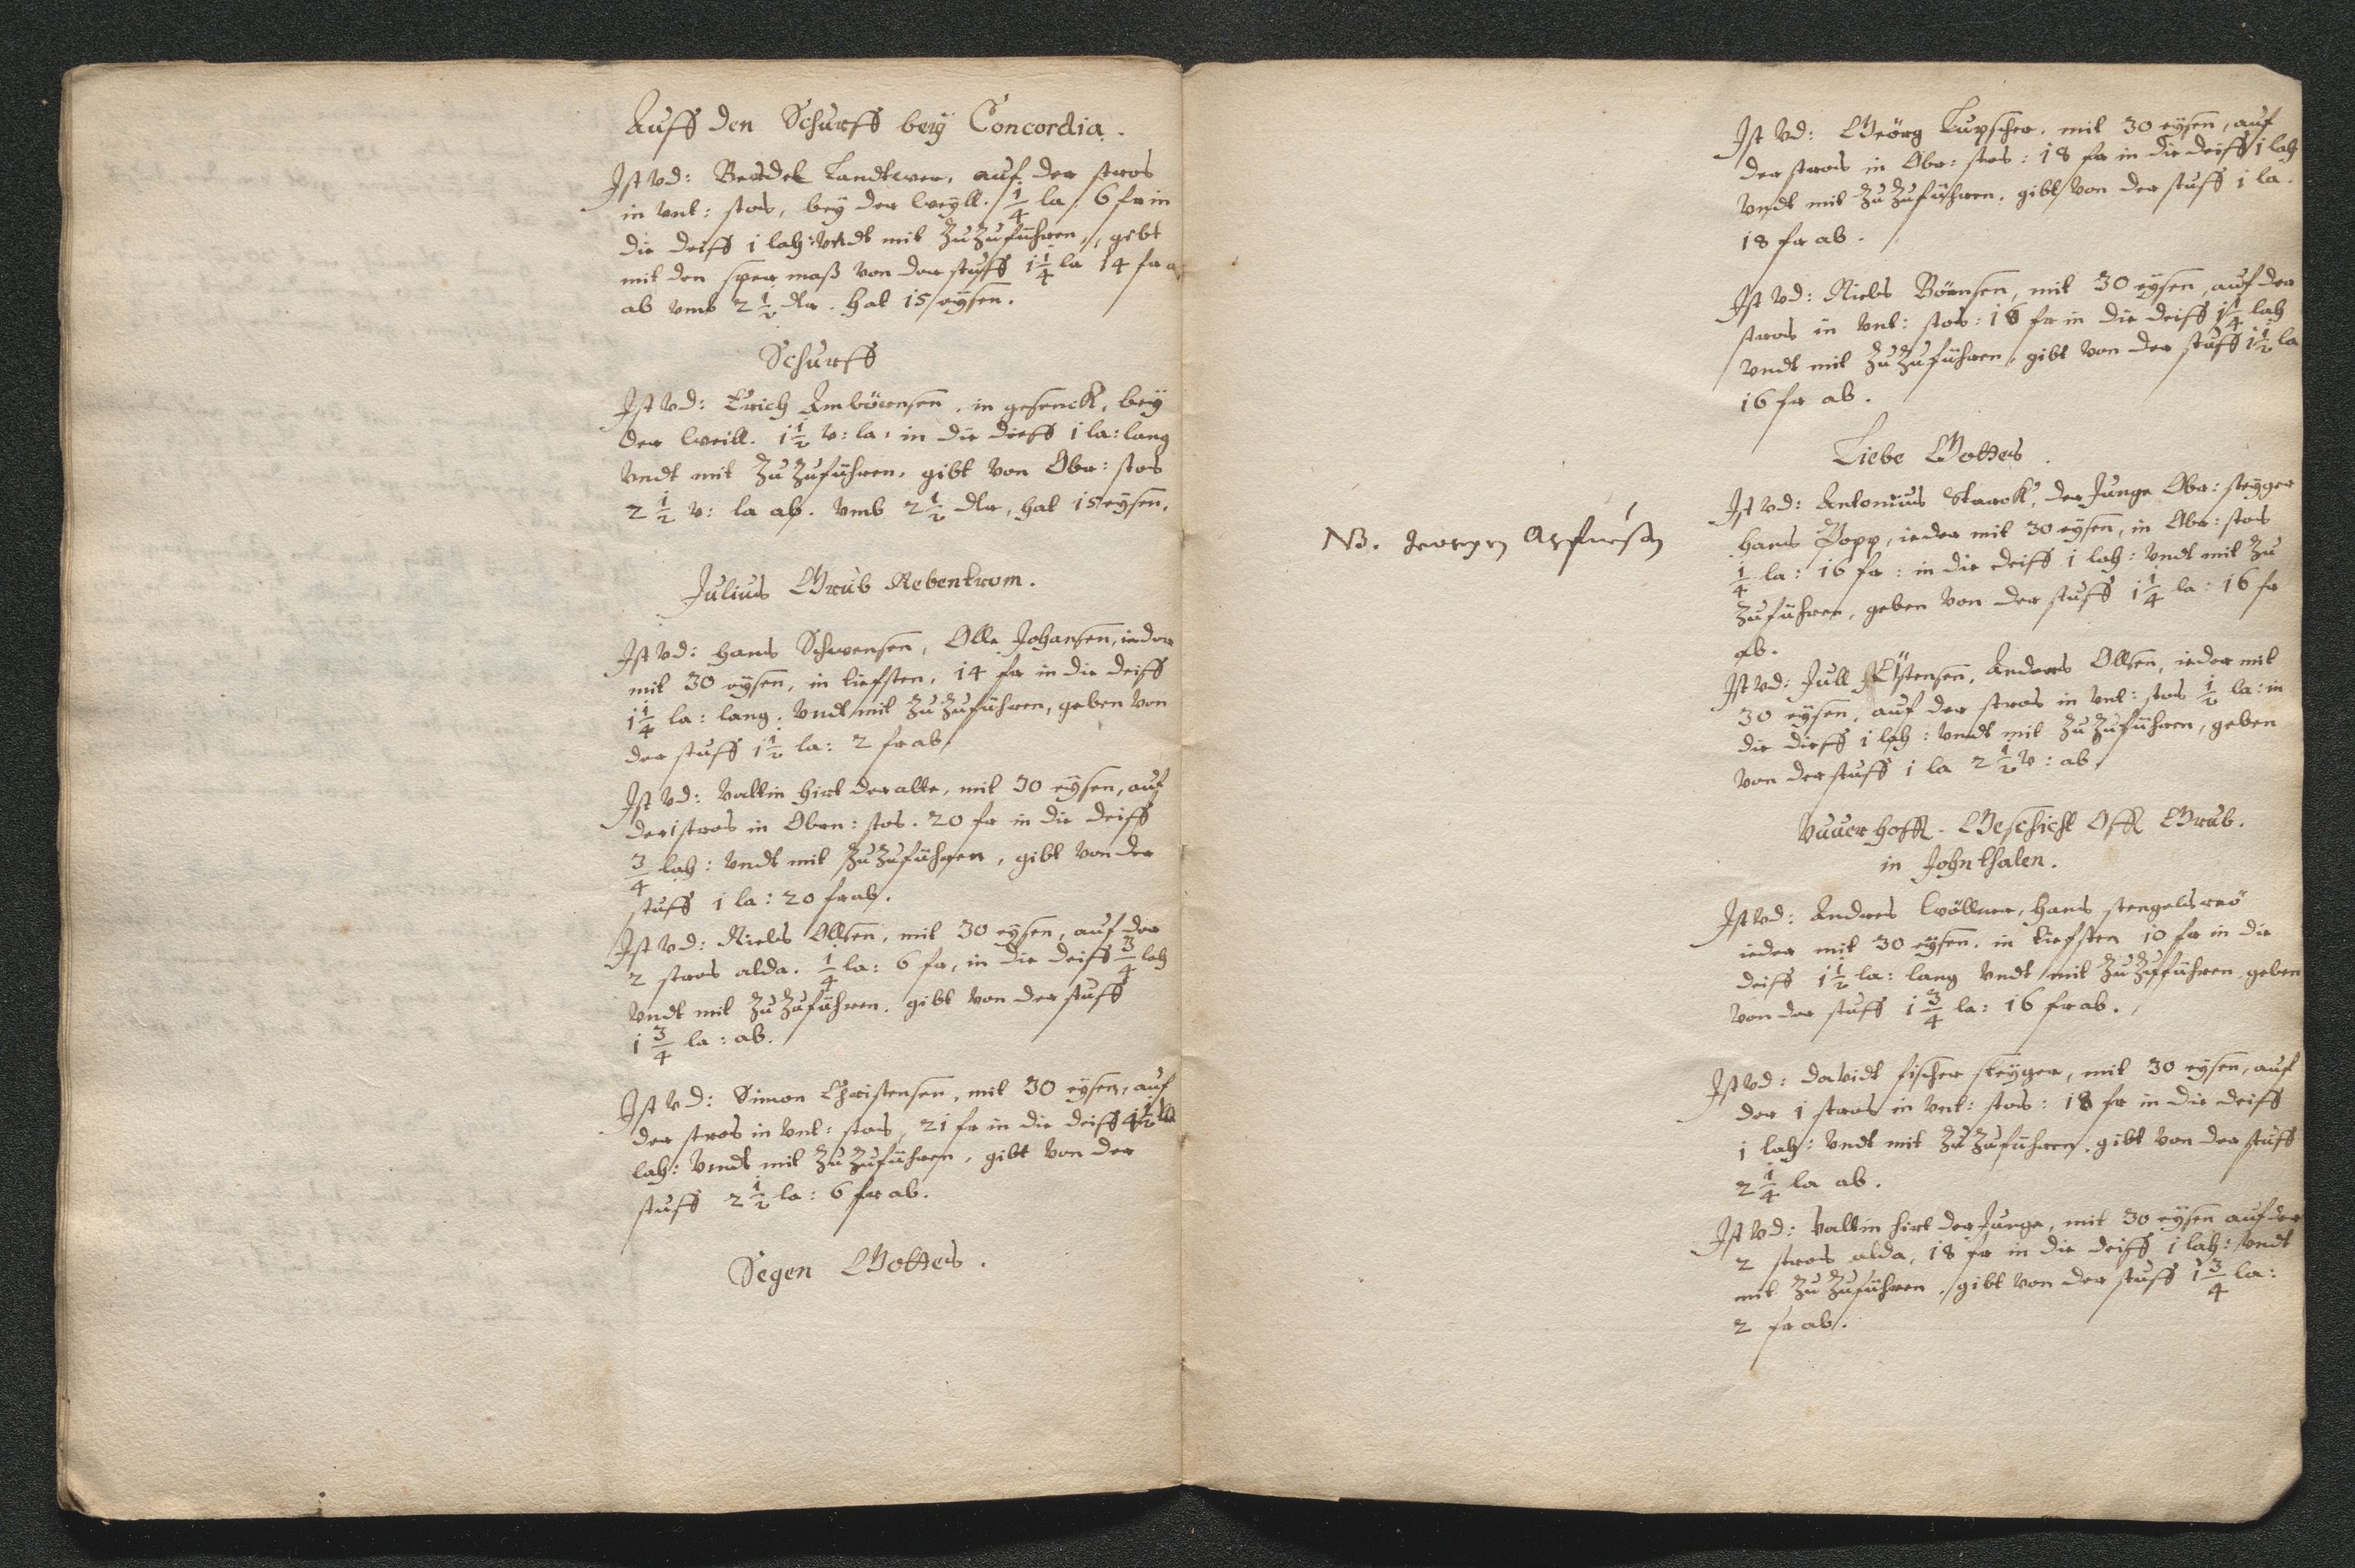 Auff den Schurff bey Concordia.
Ist vd: Bendel Landtwer, auf der stros
in vnt: stos, bey der weyll. 1/4 la 6 fr in
die deiff 1 lah: vndt mit zu zuführen, gibt
mit den sper maß von der stuff 1 1/4 la 14 fr
ab vmb 2 1/2 dlr. hat 15 eysen.
Schurff
Ist vd: Erich Amböernsen, in gesenck, bey
der weill. 1 1/2 v: la: in die dieff 1 la: lang
vndt mit zu zuführen, gibt von Obr: stos
2 1/2 v: la ab. vmb 2 1/2 dlr, hat 15 eysen.
Julius Grub Nebentrom.
Ist vd: Hans Schwensen, Olle Johansen, ieder
mit 30 eysen, in tiefsten, 14 fr in die deiff
1 1/4 la: lang. vndt mit zu zuführen, geben von
der stuff 1 1/2 la: 2 fr ab.
Ist vd: Valtin Hirt der alte, mit 30 eysen, auf
der 1 stros in Obrn: stos. 20 fr in die deiff
3/4 lah: vndt mit zu zuführen, gibt von der
stuff 1 la: 20 fr ab.
Ist vd: Niels Ollsen, mit 30 eysen, auf der
2 stros alda. 1/4 la: 6 fr, in die deiff 3/4 lah
vndt mit zu zuführen. gibt von der stuff
1 3/4 la: ab.
Ist vd: Simon Christensen, mit 30 eysen, auf
der stros in vnt: stos, 21 fr in die deiff 1 1/2
lah: vndt mit zu zuführen, gibt von der
stuff 2 1/2 la: 6 fr ab.
Segen Gottes.
Ist vd: Geörg Kupscher, mit 30 eysen, auf
der stros in Obr: stos: 18 fr in die deiff 1 lah
vndt mit zu zuführen, gibt von der stuff 1 la.
18 fr ab.
Ist vd: Niels Börnsen, mit 30 eysen, auf der
stros in vnt: stos: 18 fr in die deiff 1 1/4 lah
vndt mit zu zuführen, gibt von der stuff 1 1/2 la
16 fr ab.
Liebe Gottes.
NB.
Ist vd: Antonius Starck, der Junge Obr: steyger
Hans Popp, ieder mit 30 eysen, in Obr: stos
1/4 la: 16 fr: in die deiff 1 lah: vndt mit zu
zuführen, geben von der stuff 1 1/4 la: 16 fr
ab.
Ist vd: Jull Östensen, Anders Ollsen, ieder mit
30 eysen, auf der stros in vnt: stos 1/2 la: in
die dieff 1 lah: vndt mit zu zuführen, geben
von der stuff 1 la 2 1/2 v: ab.
Vuuerhofft. Geschicht Offt Grub.
in Johnthalen.
Ist vd: Andres Wöllner, Hans
ieder mit 30 eysen. in tiefsten 10 fr in die
deiff 1 1/2 la: lang vndt mit zu zuführen geben
von der stuff 1 3/4 la: 16 fr ab.
Ist vd: Davidt fischer steyger, mit 30 eysen, auf
der 1 stros in vnt: stos: 18 fr in die deiff
1 lah: vndt mit zu zuführen, gibt von der stuff
2 1/4 la ab.
Ist vd: Valtin Hirt der Junge, mit 30 eysen auf der
2 stros alda, 18 fr in die deiff 1 lah: vndt
mit zu zuführen, gibt von der stuff 1 3/4 la:
2 fr ab.